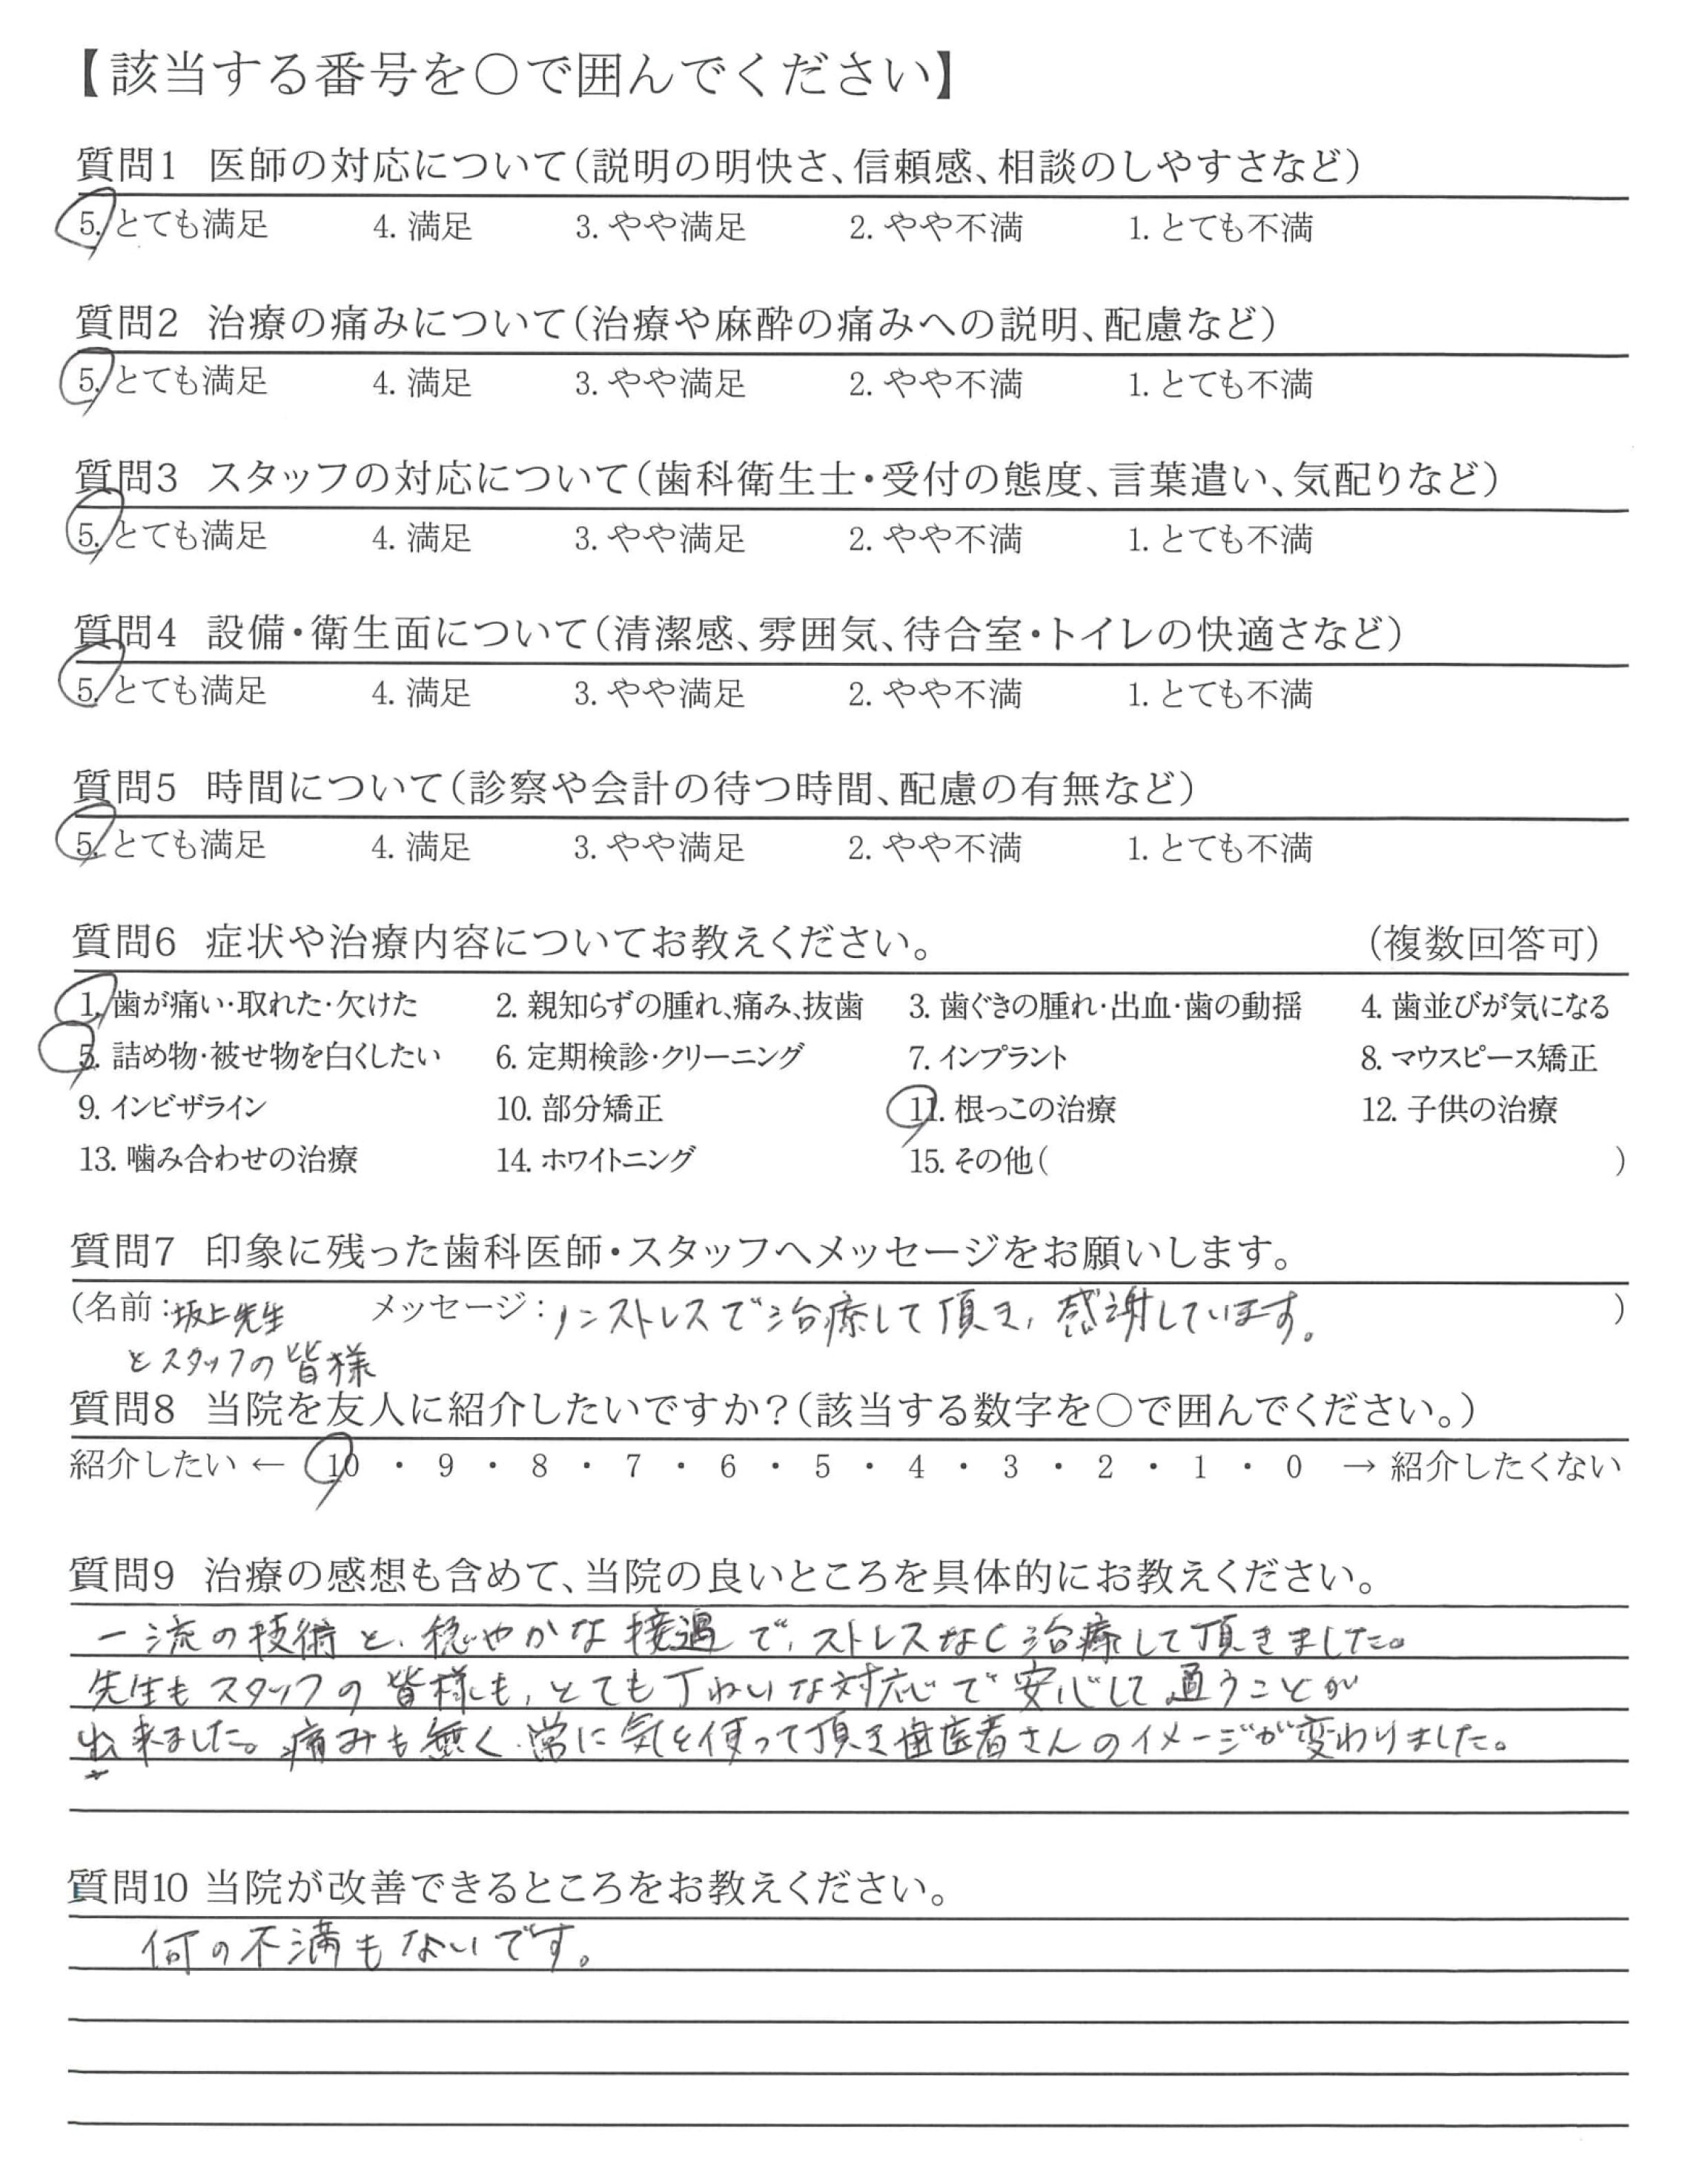 【該当する番号を〇で囲んでください】
質問1 医師の対応について(説明の明快さ、信頼感、相談のしやすさなど)
5. とても満足 4. 満足 3. やや満足 2. やや不満 1. とても不満
質問2 治療の痛みについて(治療や麻酔の痛みへの説明、配慮など)
5. とても満足 4. 満足 3. やや満足 2. やや不満 1. とても不満
質問3 スタッフの対応について(歯科衛生士・受付の態度、言葉遣い、気配りなど)
5. とても満足 4. 満足 3. やや満足 2. やや不満 1. とても不満
質問4 設備・衛生面について(清潔感、雰囲気、待合室・トイレの快適さなど)
5. とても満足 4. 満足 3. やや満足 2. やや不満 1. とても不満
質問5 時間について(診察や会計の待つ時間、配慮の有無など)
5. とても満足 4. 満足 3. やや満足 2. やや不満 1. とても不満
質問6 症状や治療内容についてお教えください。 (複数回答可)
1. 歯が痛い・取れた・欠けた 2. 親知らずの腫れ、痛み、抜歯 3. 歯ぐきの腫れ・出血・歯の動揺 4. 歯並びが気になる
5. 詰め物・被せ物を白くしたい 6. 定期検診・クリーニング 7. インプラント 8. マウスピース矯正
9. インビザライン 10. 部分矯正 11. 根っこの治療 12. 子供の治療
13. 噛み合わせの治療 14. ホワイトニング 15. その他( )
質問7 印象に残った歯科医師・スタッフへメッセージをお願いします。
(名前:坂上先生 メッセージ:ノンストレスで治療して頂き、感謝しています。 )
とスタッフの皆様
質問8 当院を友人に紹介したいですか?(該当する数字を〇で囲んでください。)
紹介したい ← 10 ・ 9 ・ 8 ・ 7 ・ 6 ・ 5 ・ 4 ・ 3 ・ 2 ・ 1 ・ 0 → 紹介したくない
質問9 治療の感想も含めて、当院の良いところを具体的にお教えください。
一流の技術と、穏やかな接遇で、ストレスなく治療して頂きました。
先生もスタッフの皆様も、とても丁ねいな対応で安心して通うことが
出来ました。痛みも無く、常に気を使って頂き歯医者さんのイメージが変わりました。
質問10 当院が改善できるところをお教えください。
何の不満もないです。